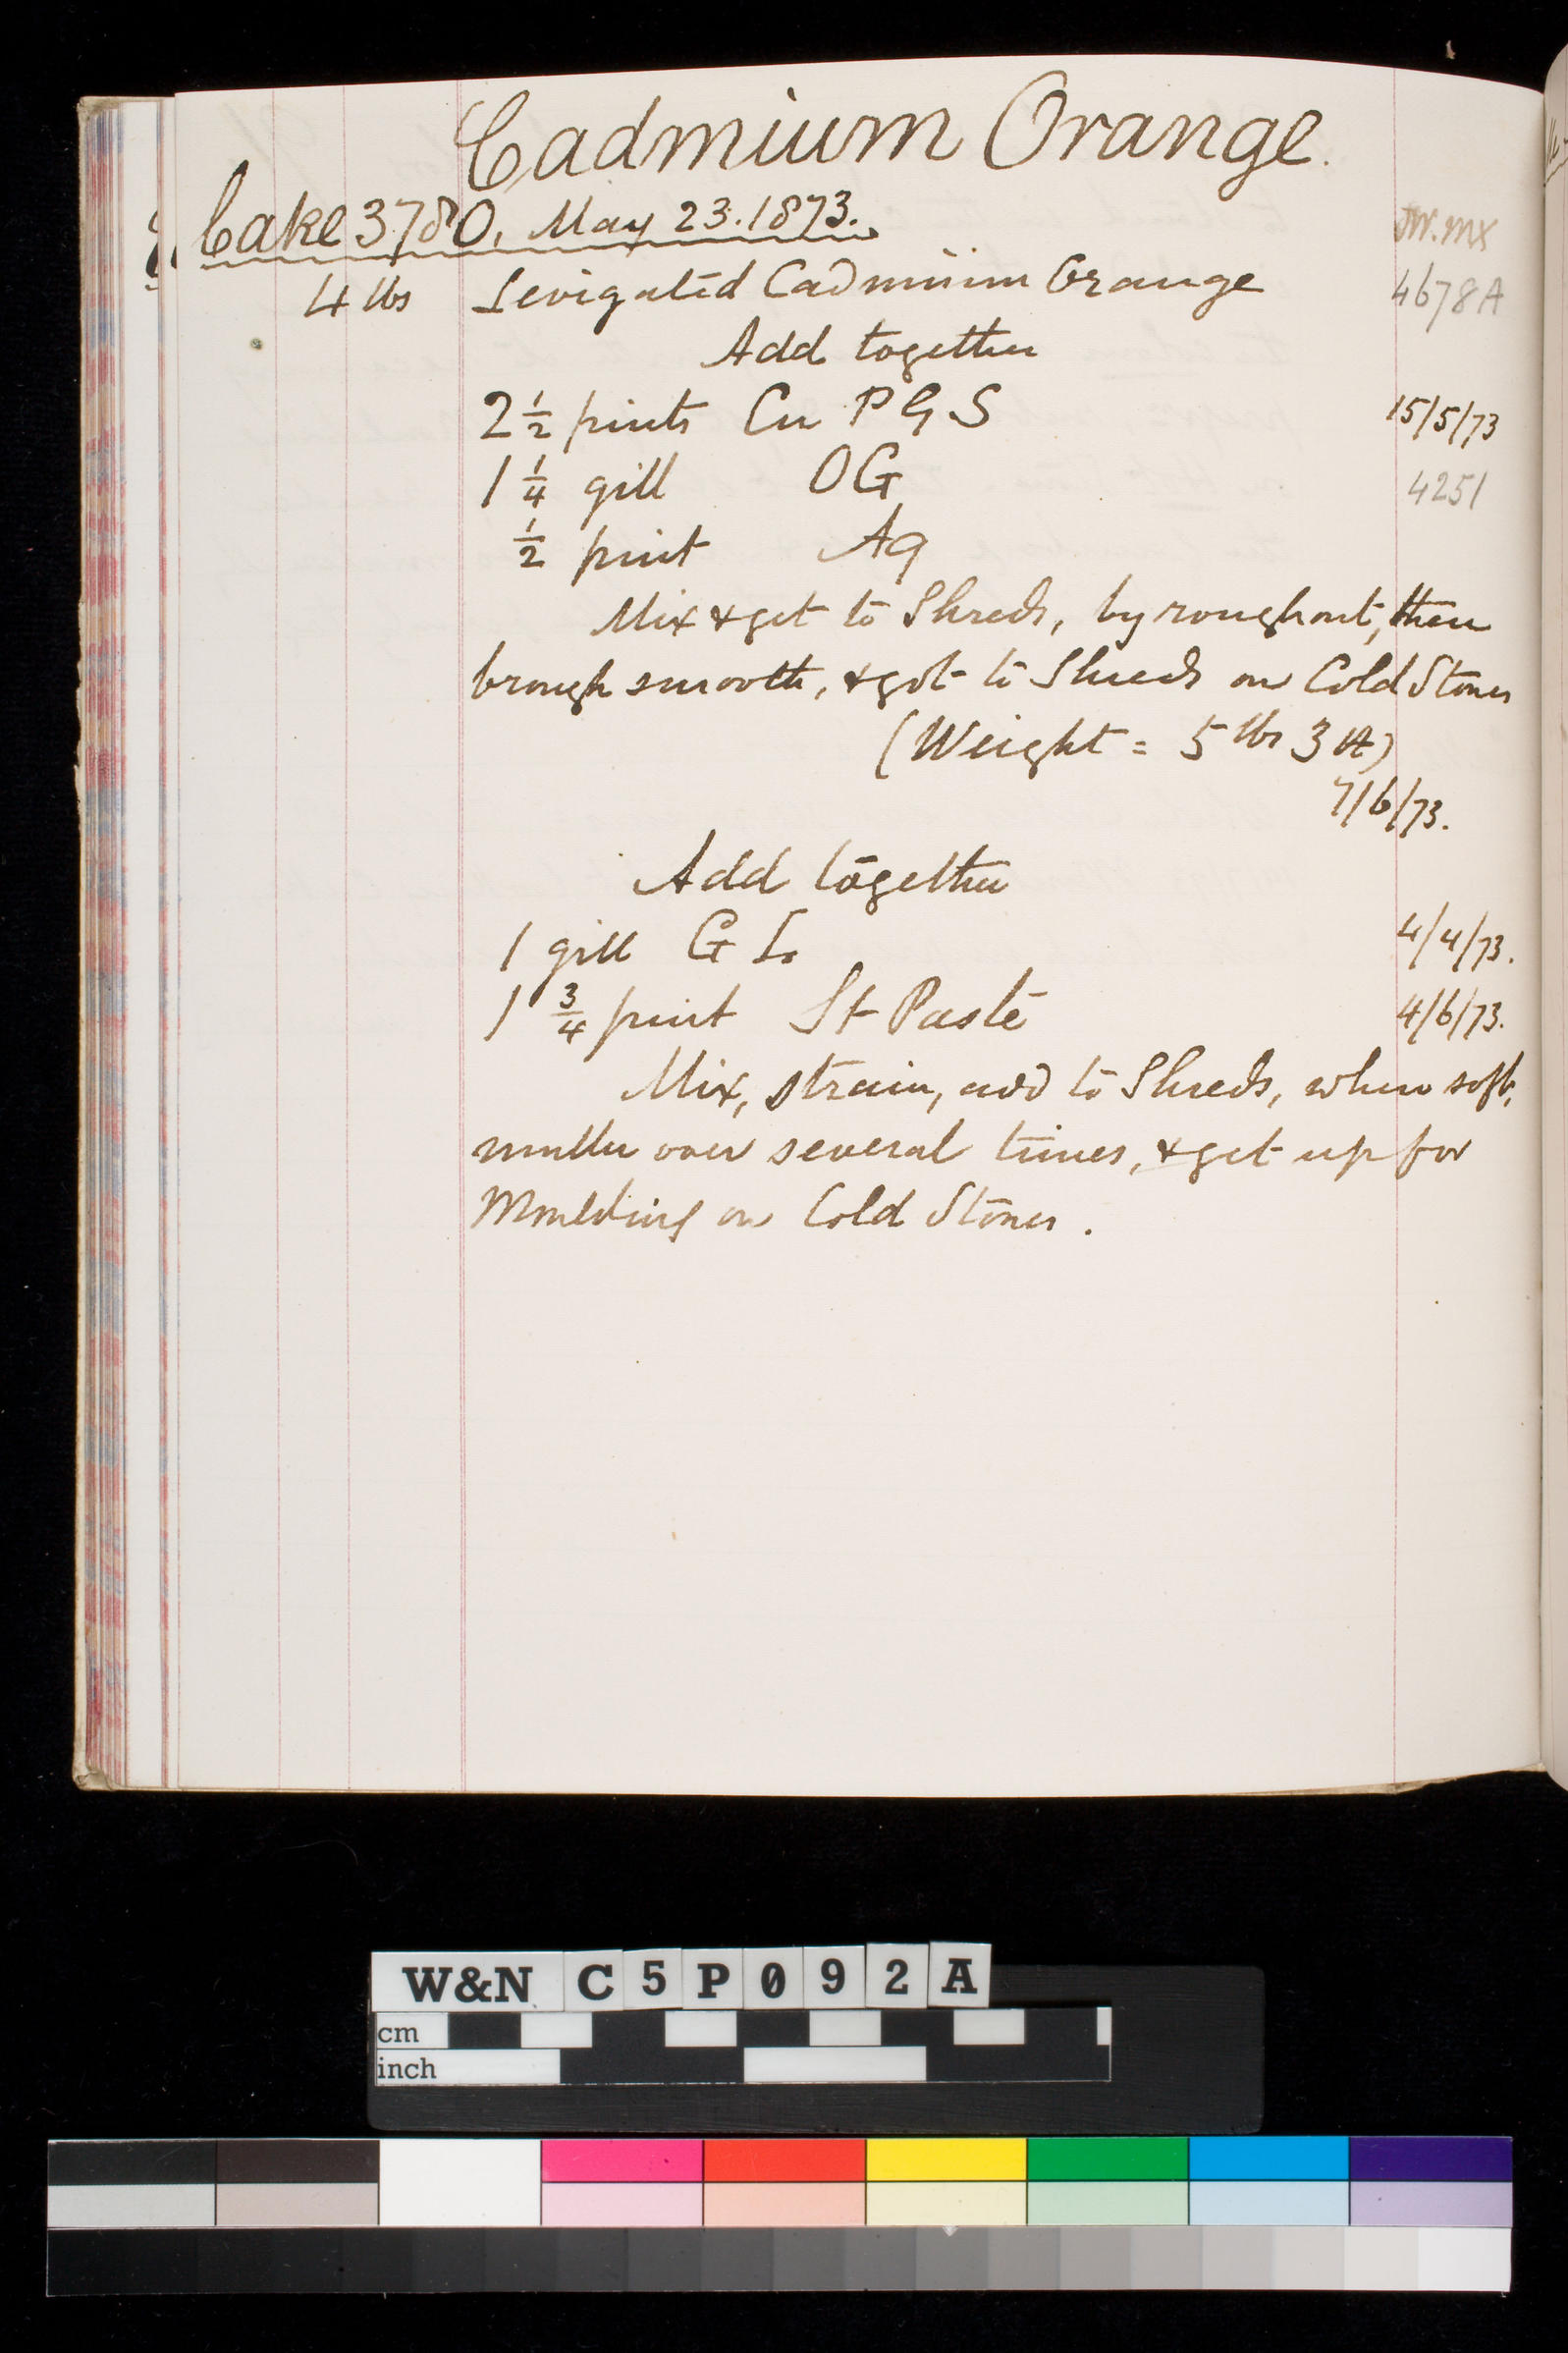 Cadmium Orange.
Cake 3780, May 23. 1873.
4 lbs Levigated Cadmium Orange 4678A
Add together
2 1/2 pints Cu P G S 15/5/73
1 1/4 gill OG 4251
1/2 pint Aq
Mix & get to Shreds, by rough out, then
brough smooth, & got to Shreds on Cold Stones
(Weight = 5 lbs 3
7/6/73.
Add together
1 gill G 4/4/73.
1 3/4 pint St Paste 4/6/73.
Mix, strain, add to Shreds, when soft,
muller over several times, & get up for
Moulding on Cold Stones.
W&N C5P092A
cm
inch